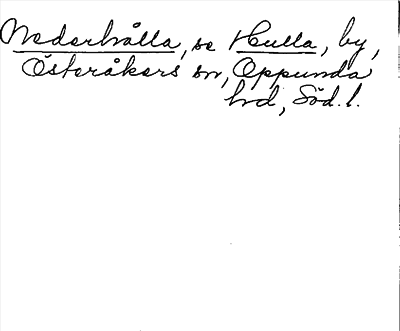 Nederhålla, se Hulla, by,
Österåkers sn, Oppunda
hd, Söd. l.